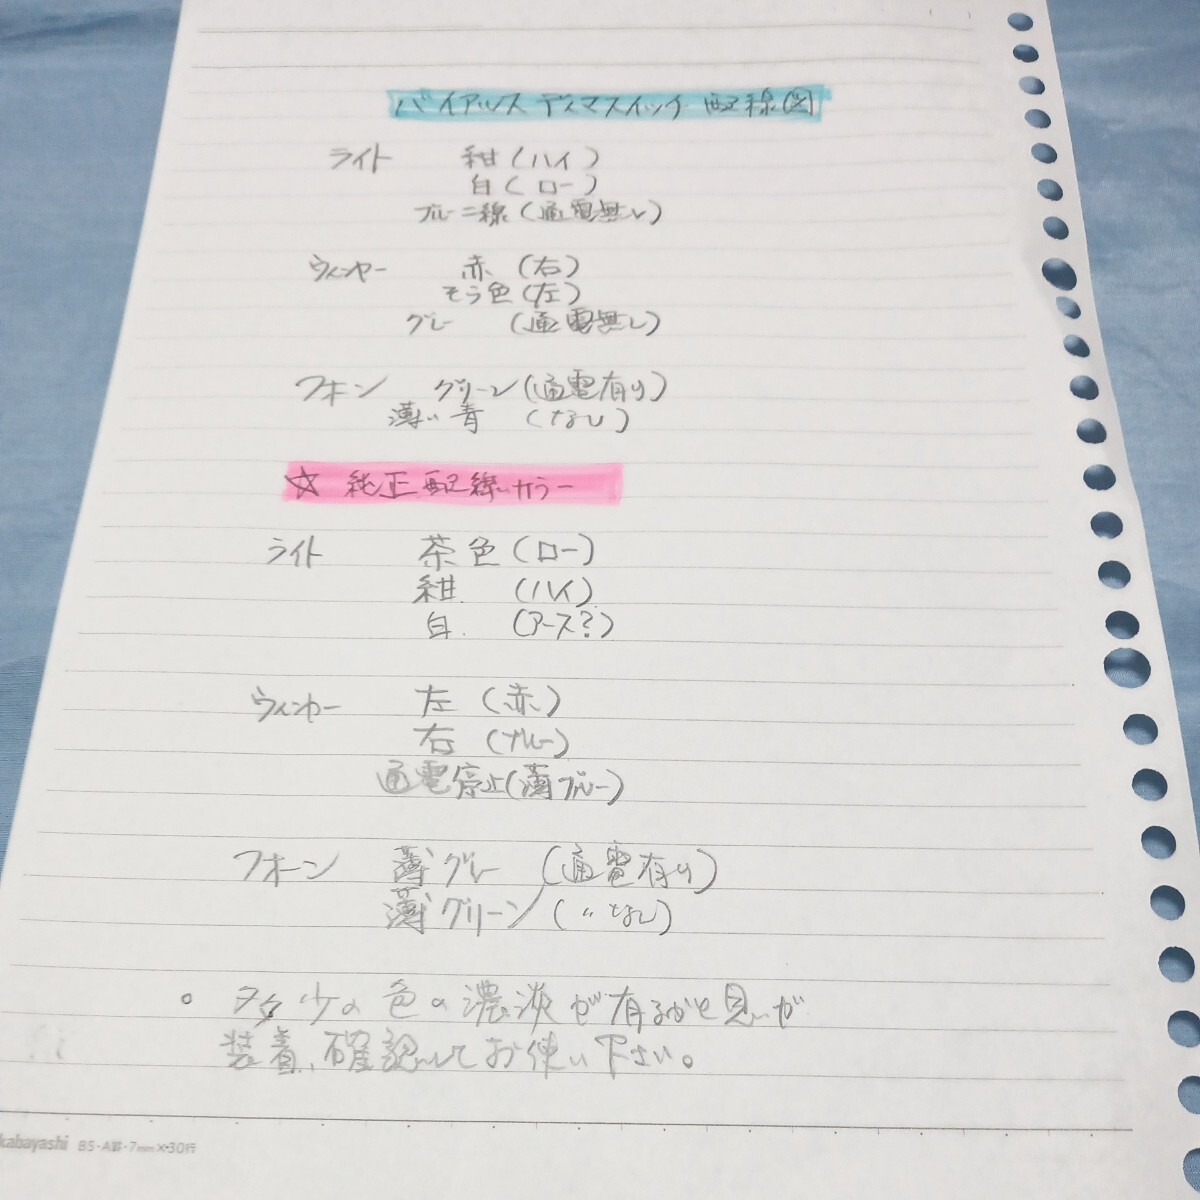 バイアルス ディマスイッチ 配線図
ライト 紺(ハイ)
白(ロー)
ブルー二線(通電無し)
ウィンカー 赤(右)
そら色(左)
グレー (通電無し)
フォン グリーン(通電有り)
薄い青 (なし)
☆ 純正配線カラー
ライト 茶色(ロー)
紺 (ハイ)
白 (アース?)
ウィンカー 左(赤)
右(ブルー)
通電停止(薄ブルー)
フォーン 薄グレー (通電有り)
薄グリーン(〃なし)
。多少の色の濃淡が有るかと思いが
装着、確認してお使い下さい。
kabayashi B5・A罫・7mm×30行